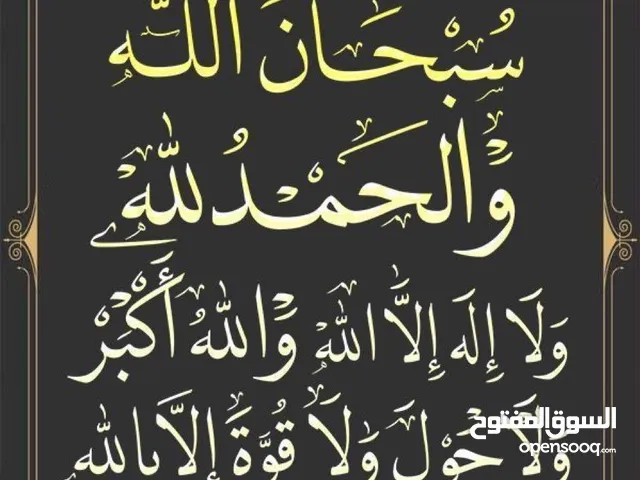 سُبْحَانَ اللَّه
وَالْحَمْدُ لِلَّهِ
وَلَا إِلَهَ إِلَّا اللَّهُ وَاللَّهُ أَكْبَرْ
وَلَا حَوْلَ وَلَا قُوَّةَ إِلَّا بِاللَّهِ
السوق المفتوح
opensooq.com